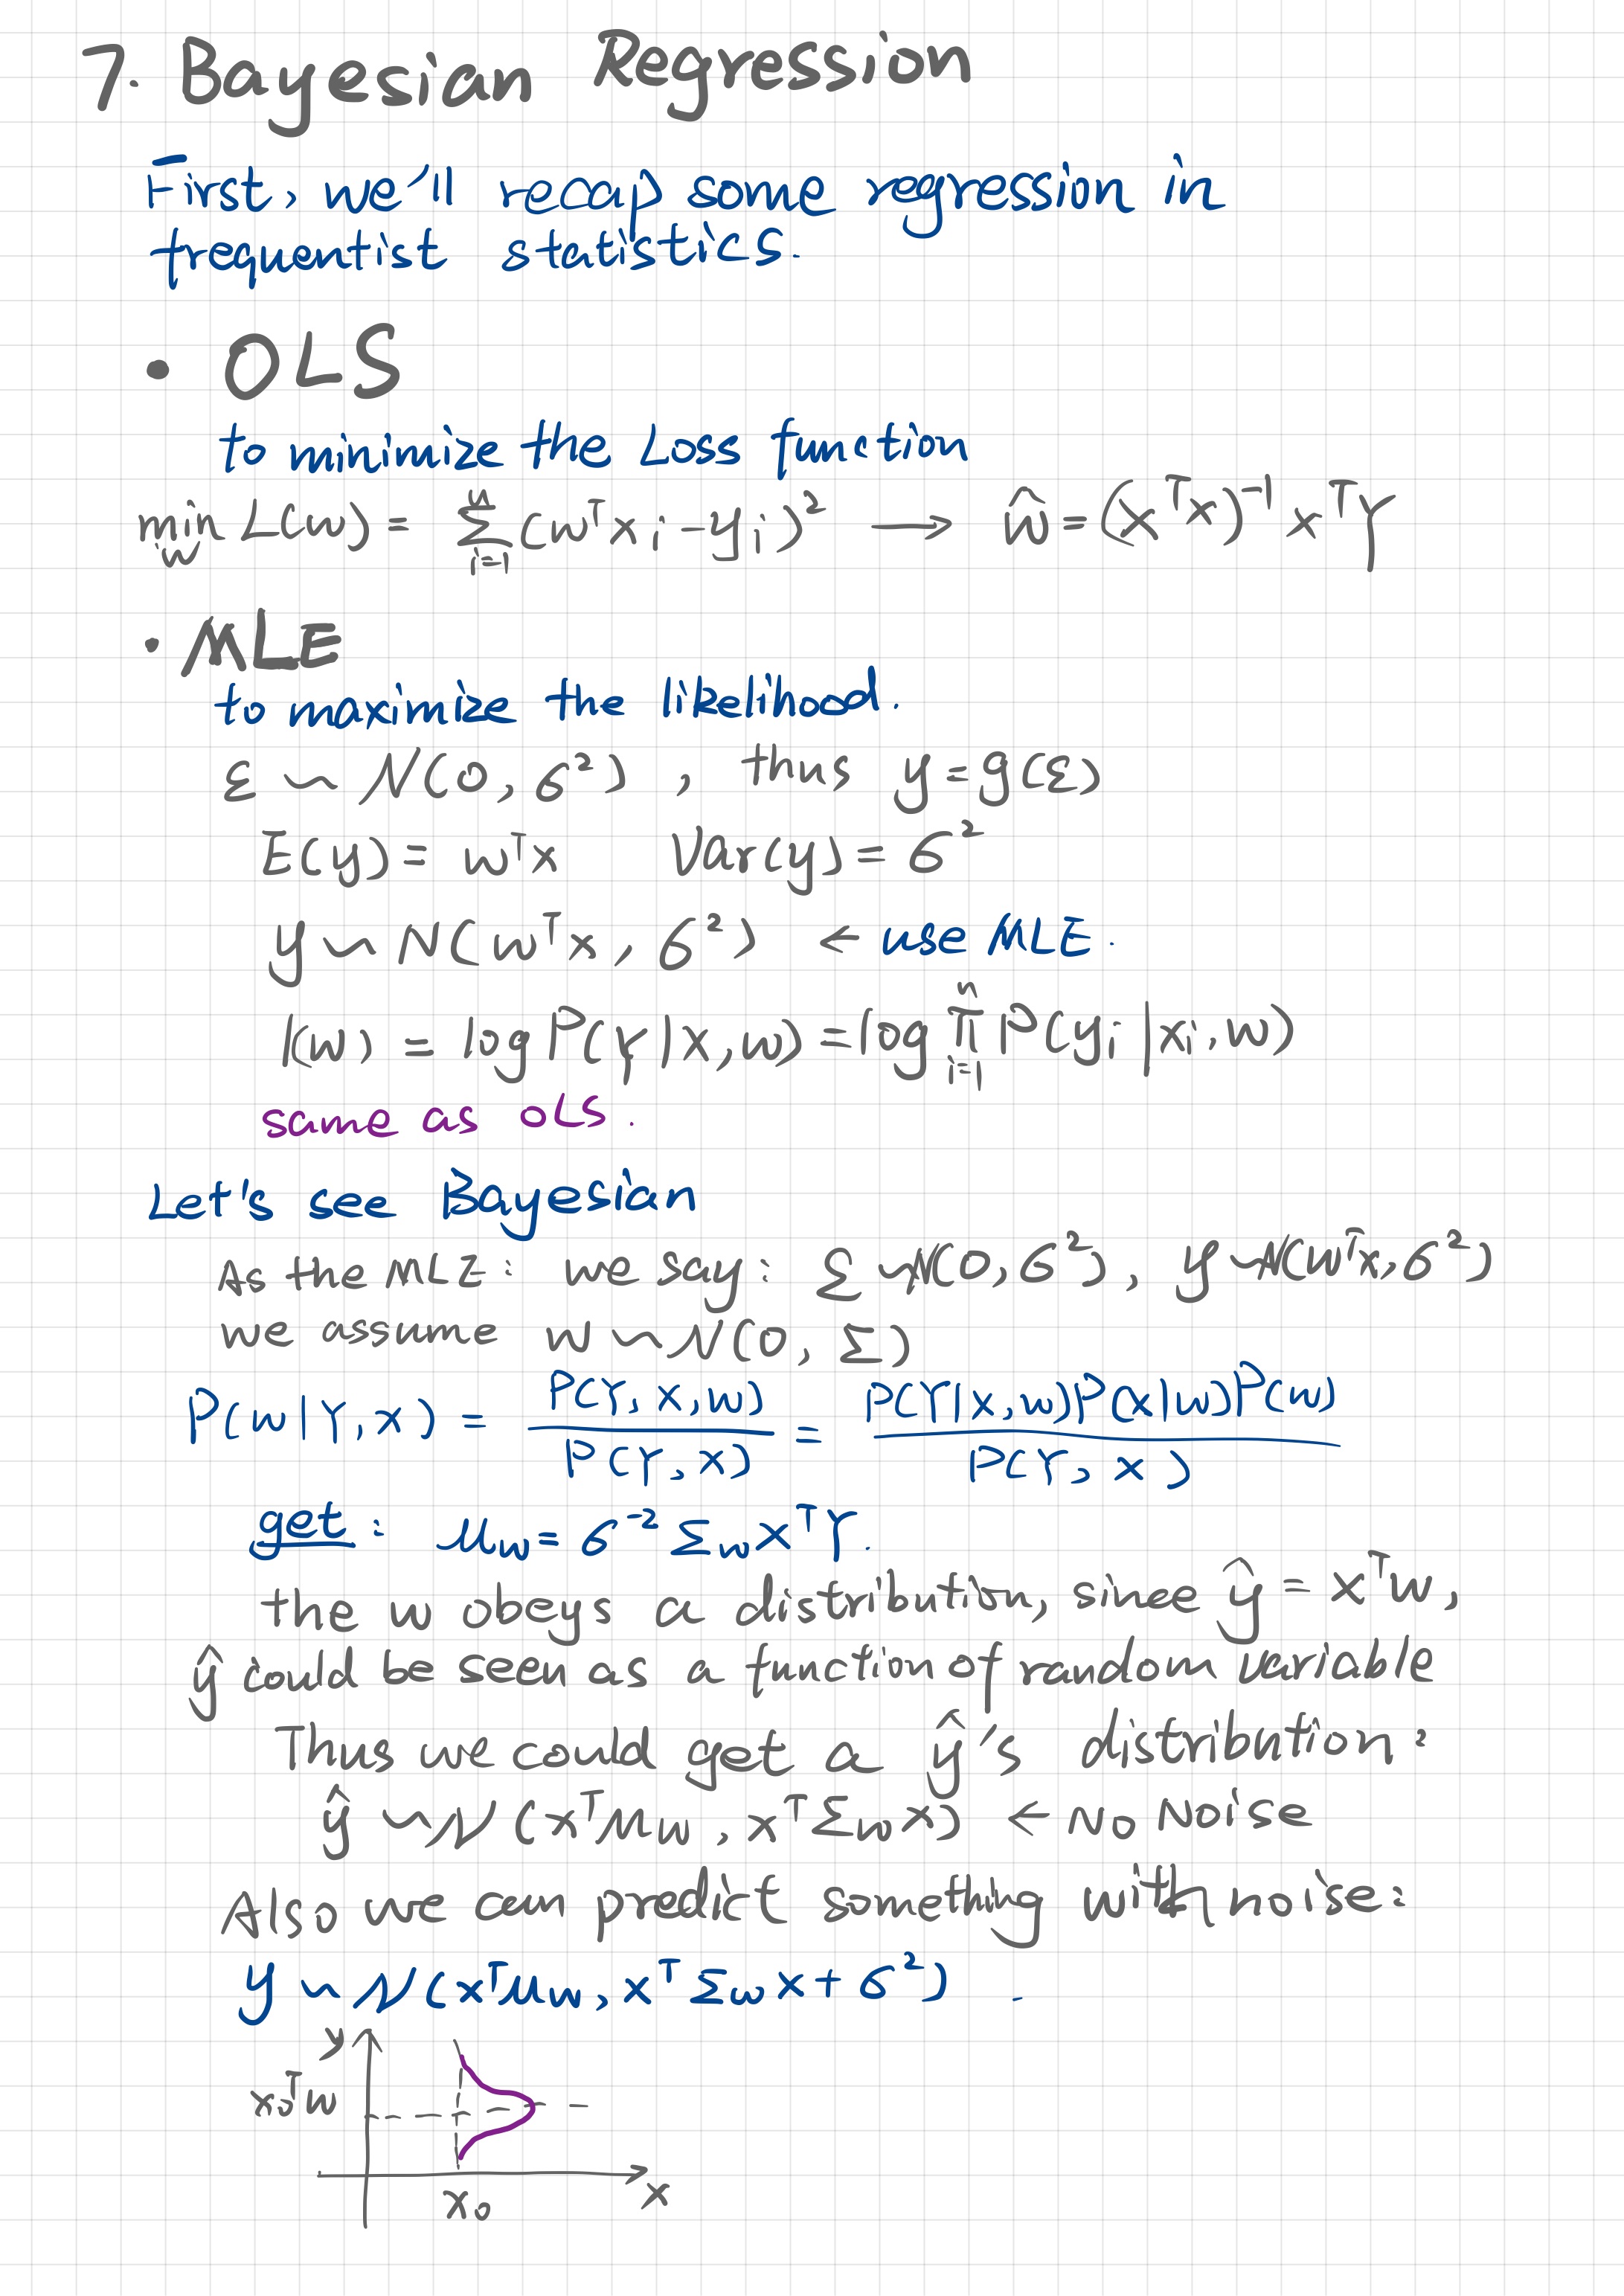 7. Bayesian Regression
First, we'll recap some regression in
frequentist statistics.
· OLS
to minimize the Loss function
min_w L(w) = Σ_{i=1}^{n} (w^T x_i - y_i)^2 ⟶ ŵ = (x^T x)^{-1} x^T Y
· MLE
to maximize the likelihood.
ε ~ N(0, σ^2), thus y = g(ε)
E(y) = w^T x Var(y) = σ^2
y ~ N(w^T x, σ^2) ← use MLE.
l(w) = log P(Y|x, w) = log Π_{i=1}^{n} P(y_i|x_i, w)
same as OLS.
Let's see Bayesian
As the MLE: we say: ε ~ N(0, σ^2), y ~ N(w^T x, σ^2)
we assume w ~ N(0, Σ)
P(w|Y, x) = P(Y, x, w) / P(Y, x) = P(Y|x, w)P(x|w)P(w) / P(Y, x)
get: μ_w = σ^{-2} Σ_w x^T Y.
the w obeys a distribution, since ŷ = x^T w,
ŷ could be seen as a function of random variable
Thus we could get a ŷ's distribution:
ŷ ~ N(x^T μ_w, x^T Σ_w x) ← No Noise
Also we can predict something with noise:
y ~ N(x^T μ_w, x^T Σ_w x + σ^2).
y
x_0^T w
x_0 x